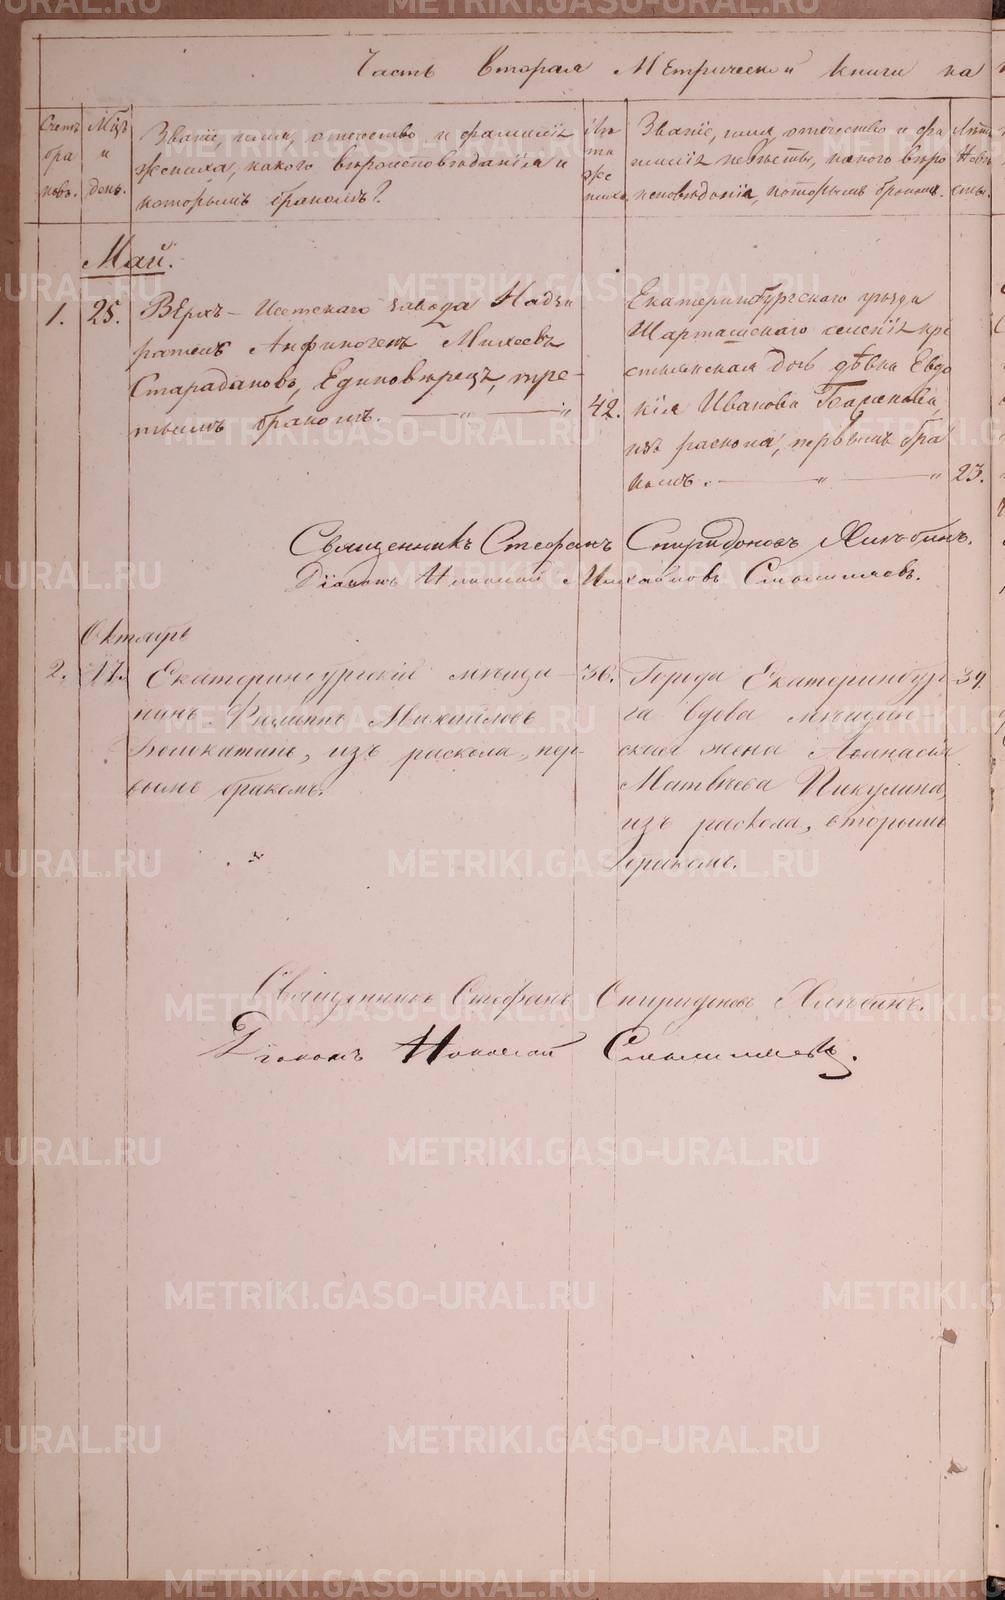 Часть вторая Метрической книги на
Счетъ браковъ.
Мцъ и день.
Званіе, имя, отчество и фамилія
жениха, какого вѣроисповѣданія и
которымъ бракомъ?
Лѣта жениха.
Званіе, имя, отчество и фа
милія невѣсты, какого вѣро
исповѣданія, которымъ бракомъ.
Лѣта Невѣсты.
Май.
1. 25. Верхъ-Исетскаго завода Надзи
ратель Анфиногенъ Михеевъ
Старадановъ, Единовѣрецъ, тре-
тьимъ бракомъ. 42.
Екатеринбургскаго уѣзда
Шарташскаго селенія кре
стьянская дочь дѣвка Евдо
кія Иванова Баженова,
изъ раскола, первымъ бра
комъ. 23.
Священникъ Стефанъ Спиридоновъ Хлѣбинъ.
Діаконъ Николай Михайловъ
Октябрь
2. 17. Екатеринбургскій мѣща 36.
нинъ Филиппъ Михайловъ
Бѣлокатинъ, изъ раскола, пер-
вымъ бракомъ.
Города Екатеринбур 39.
га вдова мѣщан
ская жена Афанасія
Матвѣева Пикулина,
изъ раскола, вторымъ
бракомъ.
Священникъ Стефанъ Спиридоновъ Хлѣбинъ.
Діаконъ Николай
METRIKI.GASO-URAL.RU